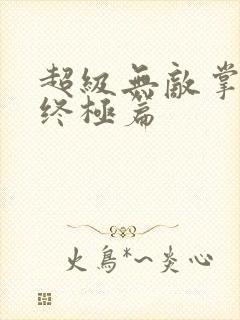 超級無敵掌
终極篇
火鳥*~炎心